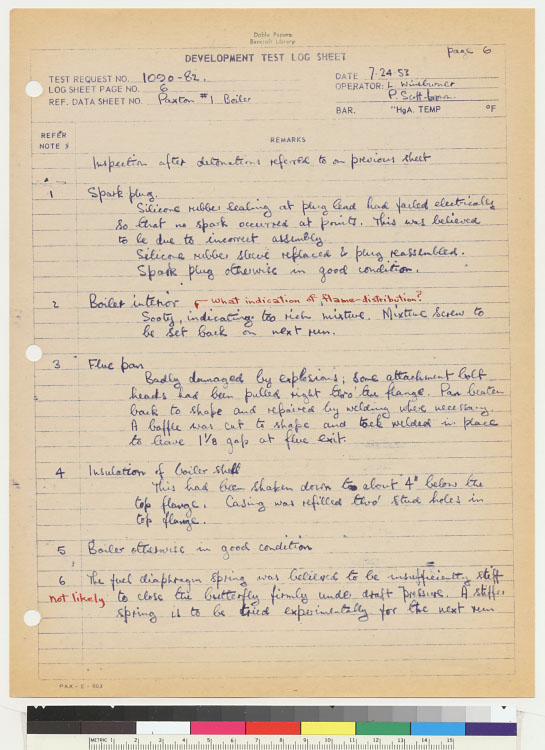 Doble Papers
Bancroft Library
page 6
DEVELOPMENT TEST LOG SHEET
TEST REQUEST NO. 1090-82.
DATE 7-24-53
LOG SHEET PAGE NO. 6
OPERATOR: L
REF. DATA SHEET NO. Paxton #1 Boiler
P. Scott-brown
BAR. "HgA. TEMP °F
REFER
NOTE
REMARKS
Inspection after detonations referred to on previous sheet
1 Spark plug.
Silicone rubber sealing at plug lead had failed electrically
so that no spark occurred at points. This was believed
to be due to incorrect assembly.
Silicone rubber sleeve replaced & plug reassembled.
Spark plug otherwise in good condition.
2 Boiler interior ← What indication of flame-distribution?
Sooty, indicating too rich mixture. Mixture Screw to
be set back on next run.
3 Flue pan
Badly damaged by explosions; some attachment bolt
heads had been pulled right thro' the flange. Pan beaten
back to shape and repaired by welding where necessary.
A baffle was cut to shape and tack welded in place
to leave 1 1/8 gap at flue exit.
4 Insulation of boiler shell
This had been shaken down to about 4" below the
top flange. Casing was refilled thro' stud holes in
top flange.
5 Boiler otherwise in good condition
6 The fuel diaphragm spring was believed to be insufficiently stiff
not likely to close the butterfly firmly under draft pressure. A stiffer
spring is to be tried experimentally for the next run
PAX-E-003
METRIC 1 2 3 4 5 6 7 8 9 10 11 12 13 14 15